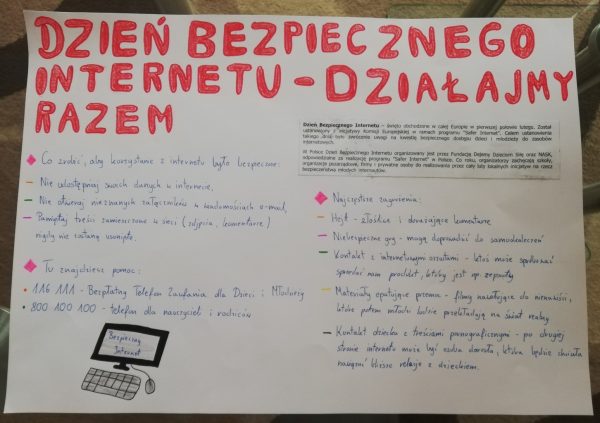 DZIEŃ BEZPIECZNEGO
INTERNETU - DZIAŁAJMY
RAZEM
Dzień Bezpiecznego Internetu – święto obchodzone w całej Europie w pierwszej połowie lutego. Został
ustanowiony z inicjatywy Komisji Europejskiej w ramach programu "Safer Internet". Celem ustanowienia
takiego dnia było zwrócenie uwagi na kwestię bezpiecznego dostępu dzieci i młodzieży do zasobów
internetowych.
W Polsce Dzień Bezpiecznego Internetu organizowany jest przez Fundację Dajemy Dzieciom Siłę oraz NASK,
odpowiedzialne za realizację programu "Safer Internet" w Polsce. Co roku, organizatorzy zachęcają szkoły,
organizacje pozarządowe, firmy i prywatne osoby do realizowania przez cały luty lokalnych inicjatyw na rzecz
bezpieczeństwa młodych internautów.
Co zrobić, aby korzystanie z internetu było bezpieczne:
- Nie udostępniaj swoich danych w internecie,
- Nie otwieraj nieznanych załączników w wiadomościach e-mail,
- Pamiętaj treści zamieszczone w sieci (zdjęcia, komentarze)
nigdy nie zostaną usunięte.
Tu znajdziesz pomoc:
• 116 111 - Bezpłatny Telefon Zaufania dla Dzieci i Młodzieży
• 800 100 100 - telefon dla nauczycieli i rodziców
Bezpieczny
Internet
Najczęstsze zagrożenia:
- Hejt - złośliwe i obrażające komentarze
- Niebezpieczne gry - mogą doprowadzić do samookaleczeń
- Kontakt z internetowymi oszustami - ktoś może
sprzedać nam produkt, który jest np. zepsuty
- Materiały epatujące przemocą - filmy nawołujące do nienawiści,
które potem młodzi ludzie przekładają na świat realny
- Kontakt dziecka z treściami pornograficznymi - po drugiej
stronie internetu może być osoba dorosła, która będzie chciała
nawiązać bliższe relacje z dzieckiem.